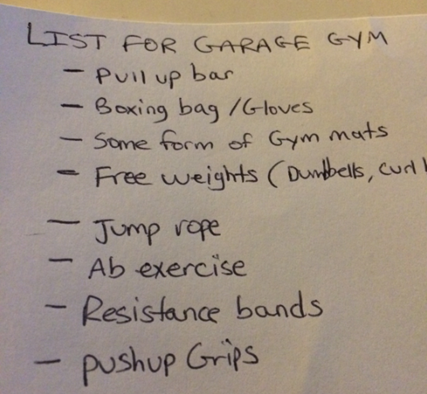 LIST FOR GARAGE GYM
- Pull up bar
- Boxing bag /Gloves
- Some form of Gym mats
- Free weights (Dumbells, curl
- Jump rope
- Ab exercise
- Resistance bands
- pushup Grips